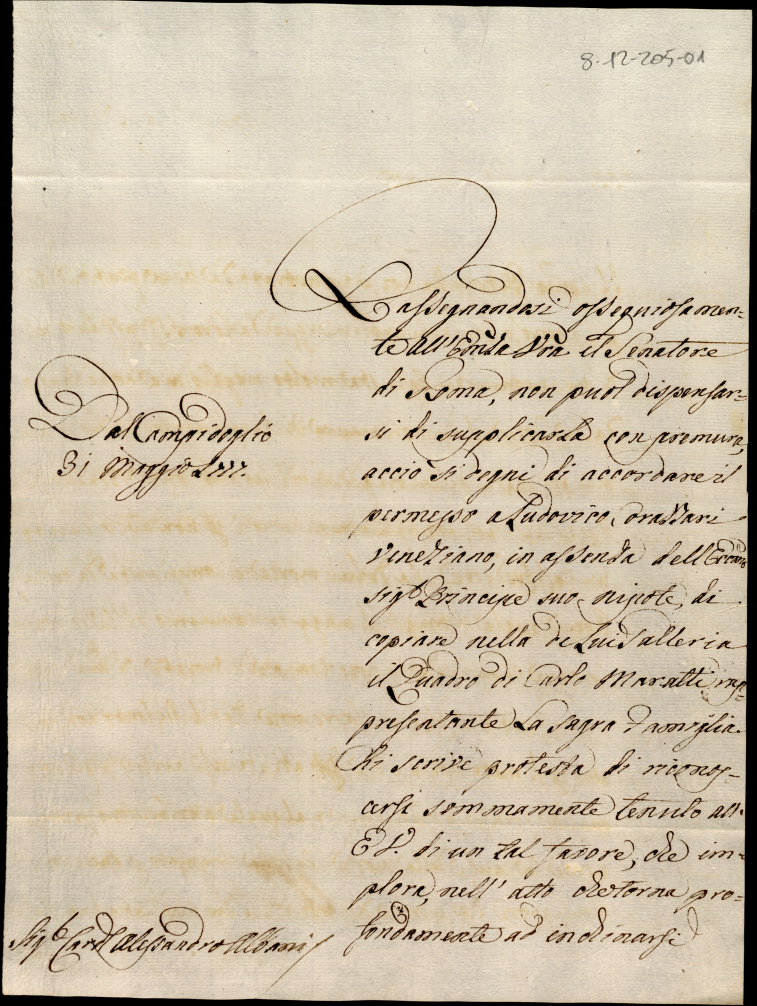 8-12-205-01
Rassegnandosi ossequiosamen-
te all'Em̃za Vr̃a il Senatore
di Roma, non puol dispensar-
si di supplicarla con premura,
acciò si degni di accordare il
permesso a Ludovico Corattari
Veneziano, in assenza dell'
Sigr Principe suo nipote, di
copiare nella di Lui Galleria
il Quadro di Carlo Maratti rap-
presentante La Sagra Famiglia
Chi scrive protesta di riconos-
cersi sommamente tenuto all'
E V. di un tal favore, che im-
plora, nell'atto che torna pro-
fondamente ad inchinarsi
Dal Campidoglio
31 Maggio
Sigr Cardl Alessandro Albani